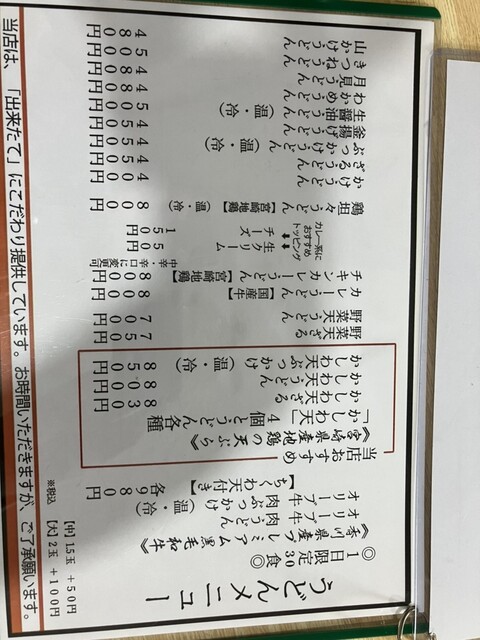 うどんメニュー
◎1日限定30食◎
《香川県産プレミアム黒毛和牛》
オリーブ牛 肉うどん
オリーブ牛 肉ぶっかけ（温・冷）
【ちくわ天付き】 各980円
当店おすすめ
《宮崎県産地鶏の天ぷら》
「かしわ天」4個とうどん各種
かしわ天ざる 830円
かしわ天うどん 800円
かしわ天ぶっかけ（温・冷） 850円
野菜天ざる 750円
野菜天うどん 700円
カレーうどん【国産牛】 800円
チキンカレーうどん【宮崎地鶏】 800円
中辛・辛口に変更可
カレー系におすすめトッピング
生クリーム 50円
チーズ 150円
鶏担々うどん【宮崎地鶏】（温・冷） 800円
かけうどん
ざるうどん
ぶっかけうどん（温・冷）
釜揚げうどん
生醤油うどん（温・冷）
わかめうどん
月見うどん
きつねうどん
山かけうどん
※税込
【中】1.5玉 +50円
【大】2玉 +100円
当店は、「出来たて」にこだわり提供しています。お時間いただきますが、ご了承願います。